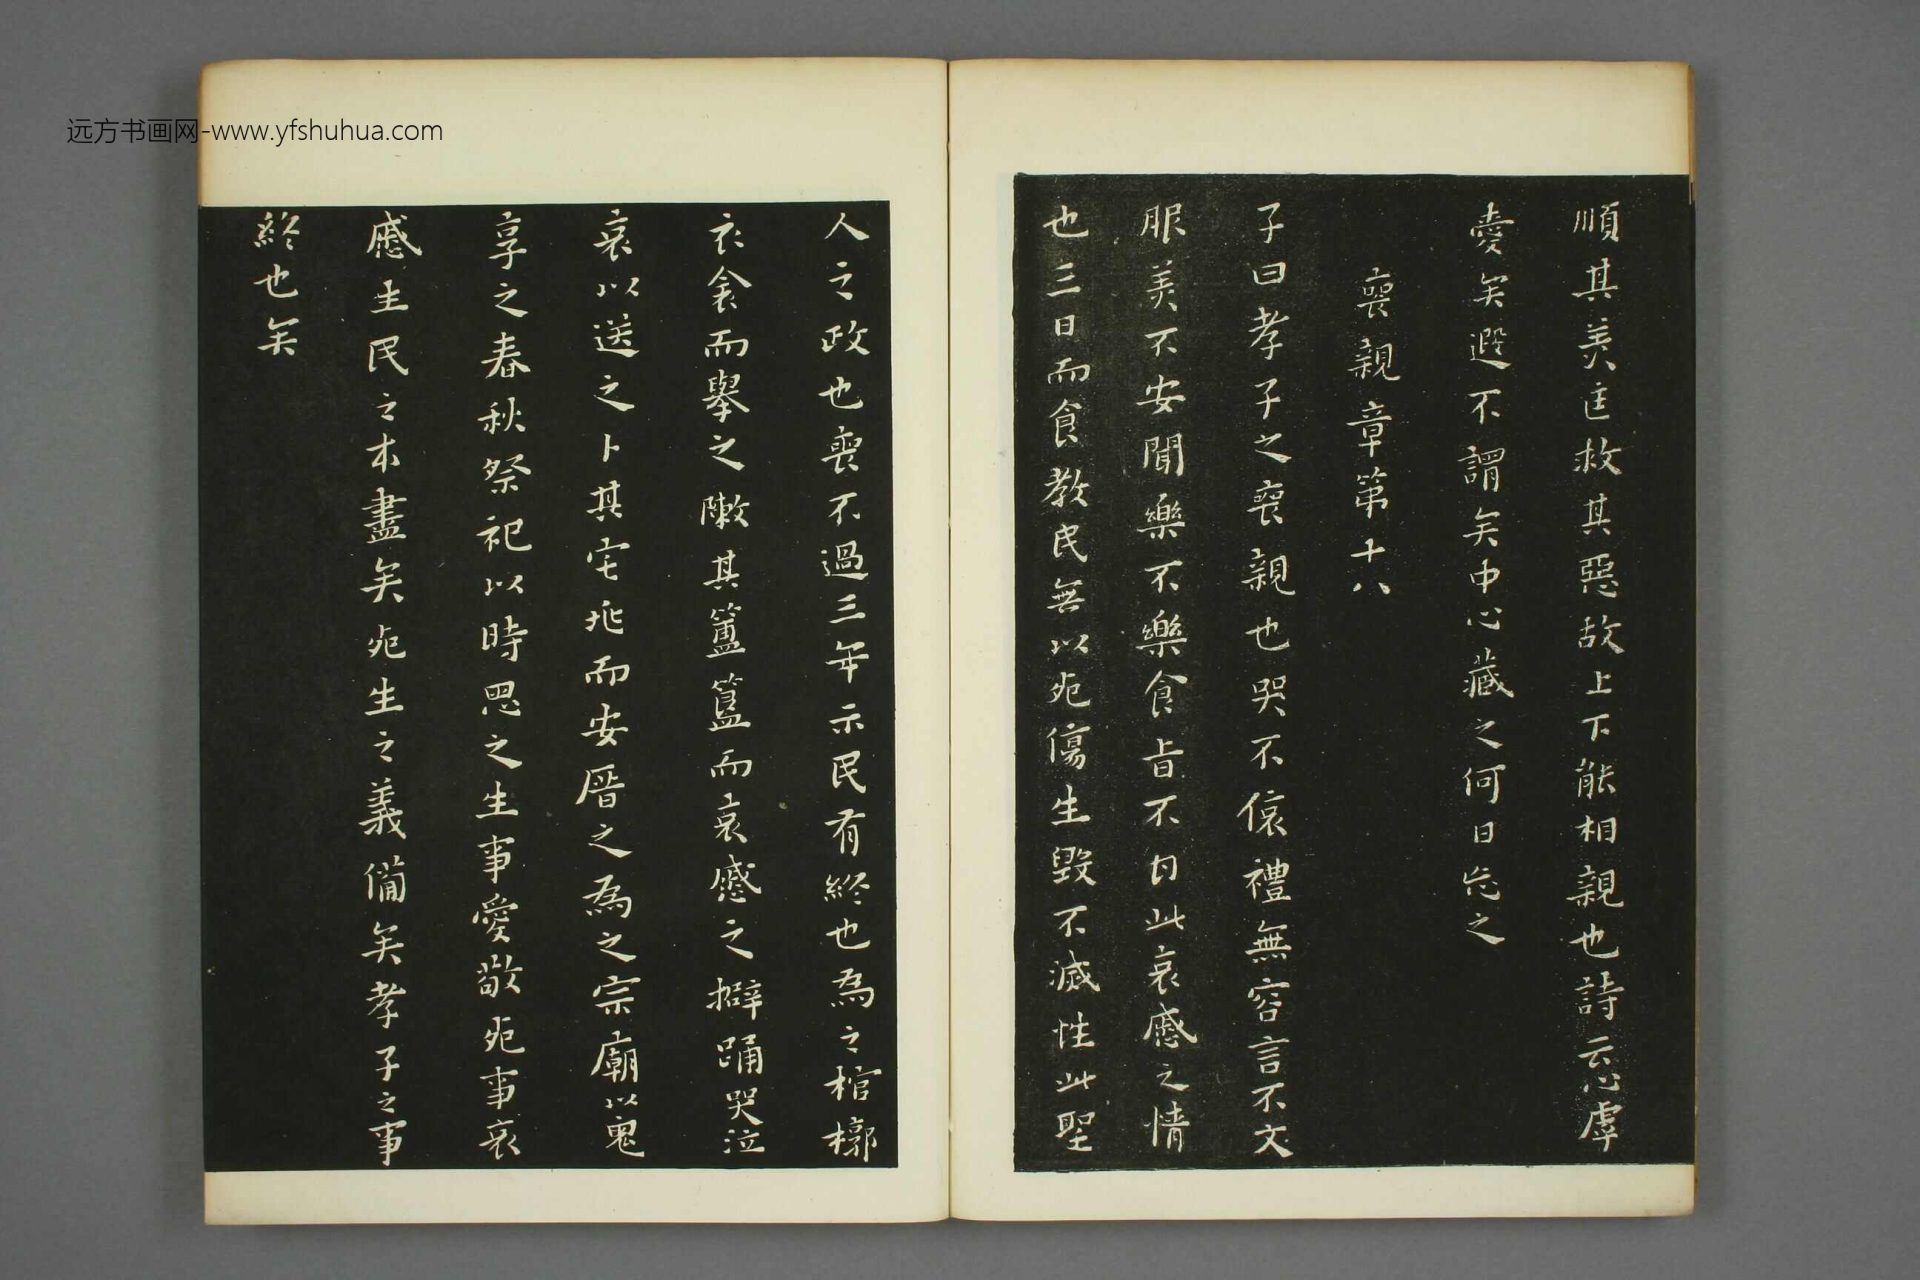 远方书画网-www.yfshuhua.com
順其美匡救其惡故上下能相親也詩云心虖
愛矣遐不謂矣中心藏之何日忘之
喪親章第十八
子曰孝子之喪親也哭不偯禮無容言不文
服美不安聞樂不樂食旨不甘此哀慼之情
也三日而食教民無以死傷生毀不滅性此聖
人之政也喪不過三年示民有終也為之棺槨
衣衾而舉之敶其簠簋而哀慼之擗踊哭泣
哀以送之卜其宅兆而安厝之為之宗廟以鬼
享之春秋祭祀以時思之生事愛敬死事哀
慼生民之本盡矣死生之義備矣孝子之事
終也矣